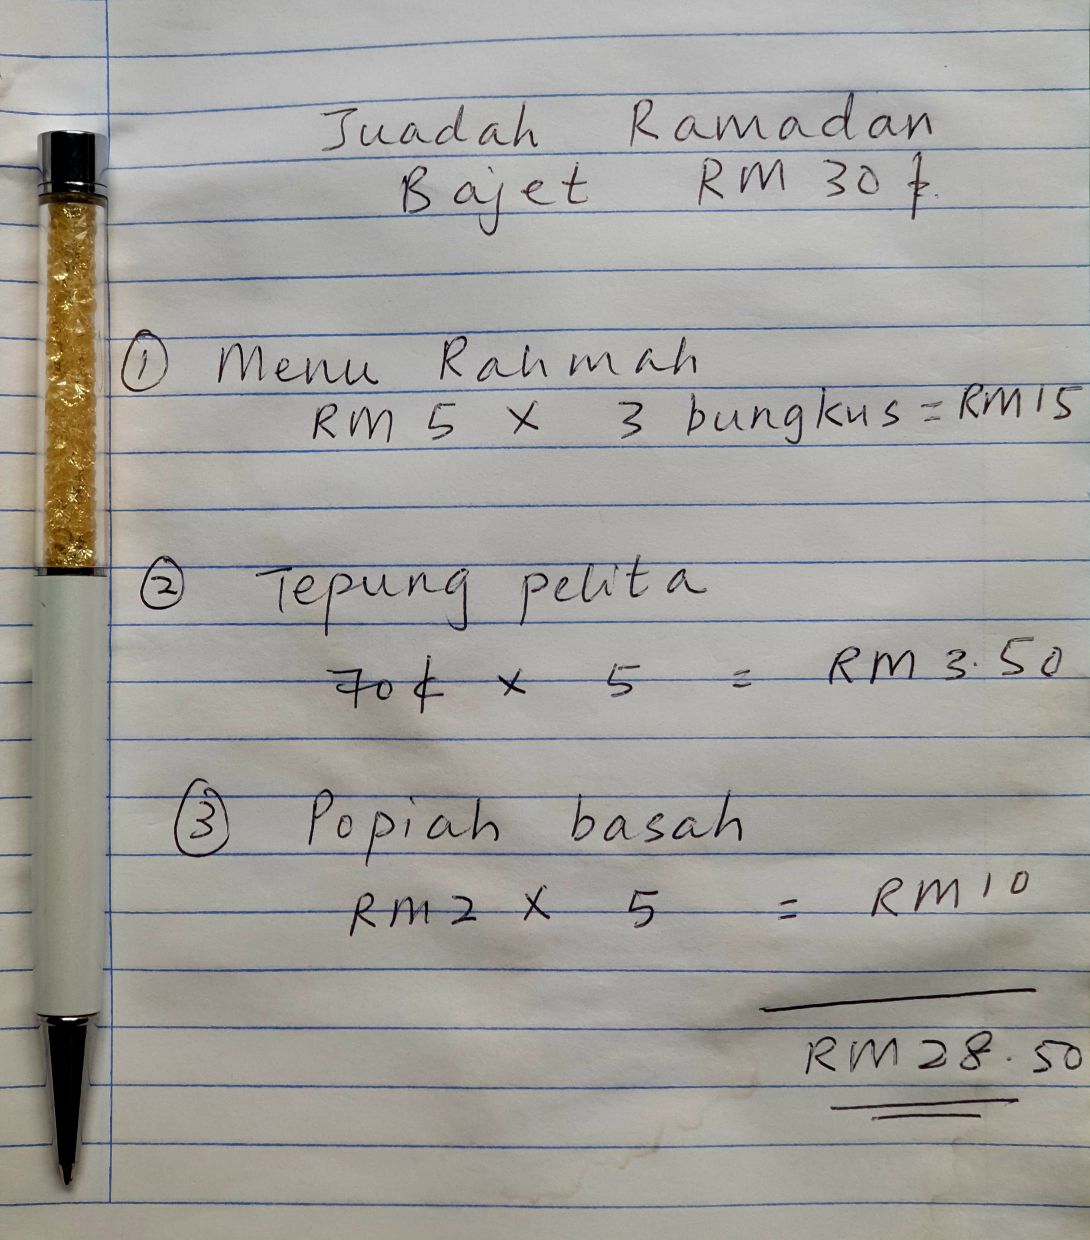 Juadah Ramadan
Bajet RM 30
① Menu Rahmah
RM 5 x 3 bungkus = RM15
② Tepung pelita
70¢ x 5 = RM 3.50
③ Popiah basah
RM2 x 5 = RM10
RM28.50